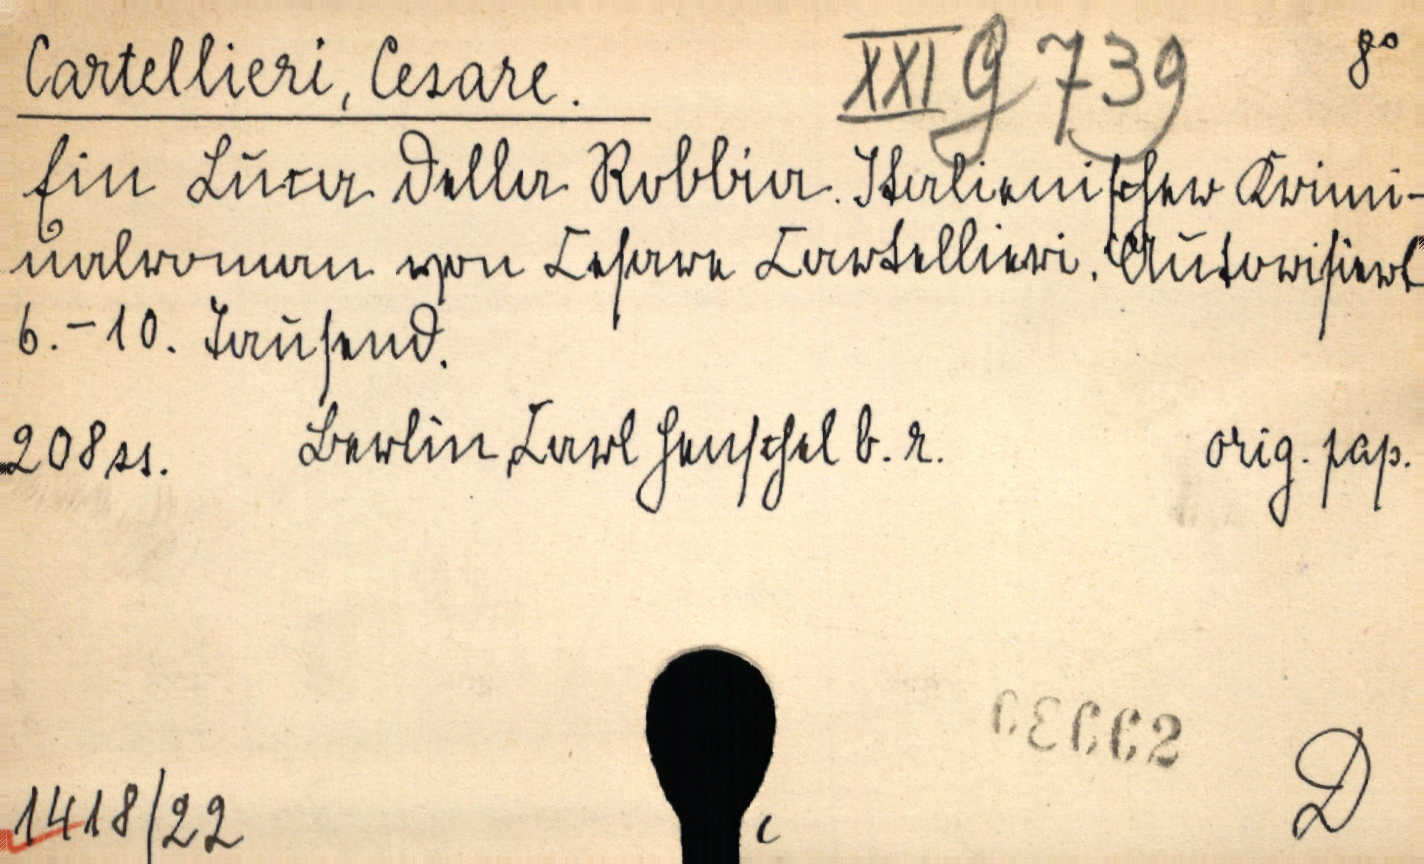 Cartellieri, Cesare. XXI G 739 8°
Ein Luca della Robbia. Italienischer Krimi-
nalroman von Cesare Cartellieri. Autorisiert
6.-10. Tausend.
208 ss. Berlin, Carl Henschel b. r. orig. pap.
D
1418/22 c